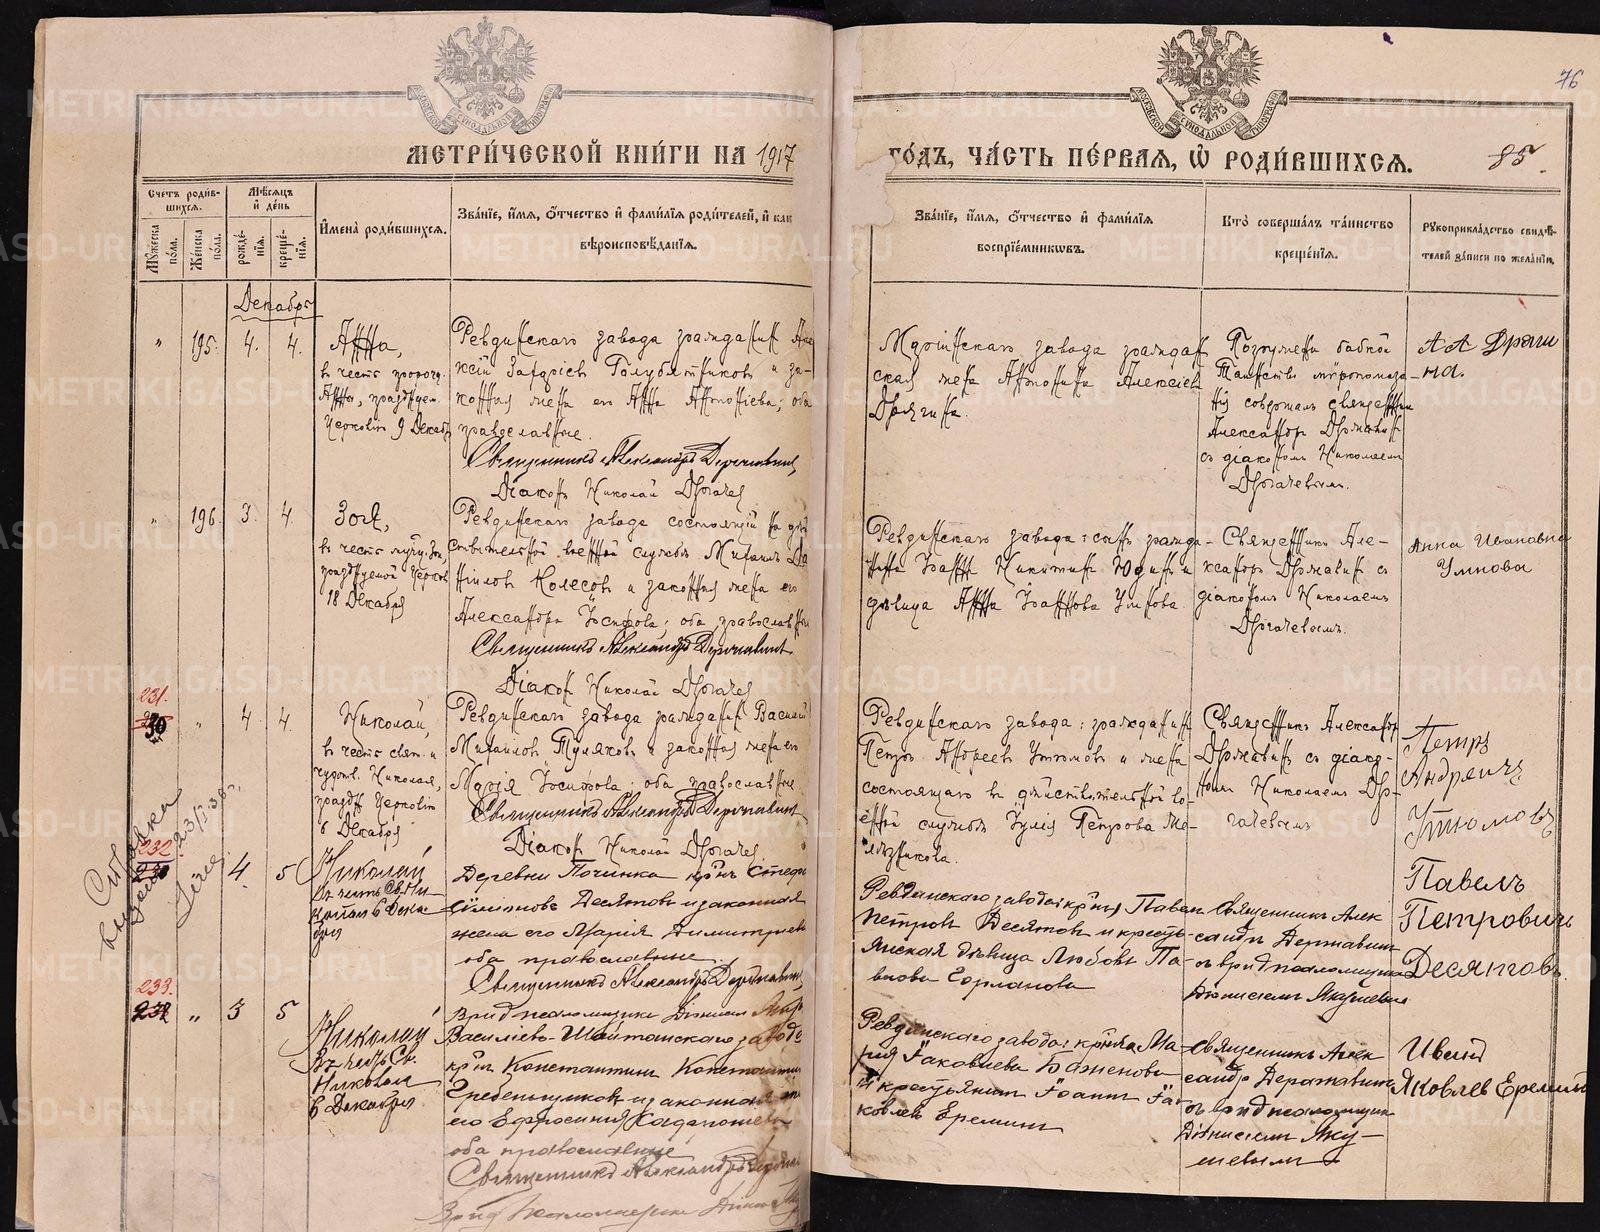 МЕТРИ́ЧЕСКОЙ КНИ́ГИ НА 1917
ГО́ДЪ, ЧА́СТЬ ПЕ́РВАЯ, Ѡ҆ РОДИ́ВШИХСЯ.
76
85.
Счетъ роди́вшихся.
Му́жеска по́ла.
Же́нска по́ла.
Мѣ́сяцъ и҆ де́нь
рожде́нїя.
креще́нїя.
И҆мена̀ роди́вшихся.
Зва́нїе, и҆́мя, ѻ҆́тчество и҆ фами́лїя роди́телей, и҆ как
вѣроисповѣ́данїя.
Зва́нїе, и҆́мя, ѻ҆́тчество и҆ фами́лїя
воспрїе́мникѡвъ.
Кто̀ соверша́лъ та́инство
креще́нїя.
Рукоприкла́дство свидѣ́-
телей за́писи по жела́нїю.
Декабрь
" 195. 4. 4.
Анна,
въ честь пророч.
Анны, празднуем.
Церковію 9 Декабр
Ревдинскаго завода гражданин
и за-
конная жена его Анна Антоніева; оба
православные.
Священникъ Александръ Державинъ,
Діаконъ Николай
Маріинскаго завода граждан
ская жена Антонина Алексіев
Дрягина.
Погружена бабкой
Таинство мѵропомаза-
нія совершалъ священникъ
Александръ Державинъ
съ діакономъ Николаемъ
А А Дряги
на.
" 196. 3. 4.
Зоя,
въ честь муч. Зои,
празднуемой Церков.
18 Декабря
Ревдинскаго завода состоящій на дѣй
ствительной военной службѣ Михаилъ Да
ніиловъ Колесовъ и законная жена его
Александра Іосифова; оба православные
Священникъ Александръ Державинъ
Діаконъ Николай
Ревдинскаго завода: сынъ гражда-
нина Іоаннъ Никитинъ Юдинъ и
дѣвица Анна Іоаннова Умнова.
Священникъ Але-
ксандръ Державинъ съ
діакономъ Николаемъ
Анна Ивановна
Умнова
231.
" 4 4
Николай,
въ честь свят. и
чудотв. Николая,
праздн. Церковію
6 Декабря
Ревдинскаго завода гражданинъ Василій
Михаиловъ Туляковъ и законная жена его
Марія Іосифова; оба православные
Священникъ Александръ Державинъ
Діаконъ Николай
Ревдинскаго завода: гражданинъ
Петръ Андреевъ Утюмовъ и жена
состоящаго въ дѣйствительной во-
енной службѣ Іулія Петрова Ме-
лѣзникова.
Священникъ Александръ
Державинъ съ діако-
номъ Николаемъ
Петръ
Андреичъ
Утюмовъ
Справка
выдана 23/I 38 г.
232.
4. 5
Николай
въ честь Св. Ни-
колая 6 Дека
бря
Деревни Починка кр-нъ Стефа
Симеоновъ Десятовъ и законная
жена его Марія Димитріев
оба православные.
Священникъ Александръ Державинъ,
Врид псаломщика Діонисій
Ревдинскаго завода: кр-нъ Павел
Петровъ Десятовъ и кресть-
янская дѣвица Любовь Па-
влова Горланова
Священникъ Алек
сандръ Державинъ
съ врид псаломщика
Діонисіемъ Якушевымъ
Павелъ
Петровичъ
Десятовъ.
233.
" 3 5
Николай
Въ честь Св.
Николая
6 Декабря
Васильево-Шайтанскаго завода
кр-нъ Константинъ Константин
Гребенщиковъ и законная жена
его Евфросинія
оба православные
Священникъ Александръ Державин
Врид Псаломщика Діонисій
Ревдинскаго завода: кр-нка Ма-
рія Іаковлева Баженова
и крестьянинъ Іоаннъ Іа-
ковлевъ Ереминъ
Священникъ Алек
сандръ Державинъ
съ врид псаломщика
Діонисіемъ Яку-
шевымъ
Иванъ
Яковлев Еремин
METRIKI.GASO-URAL.RU